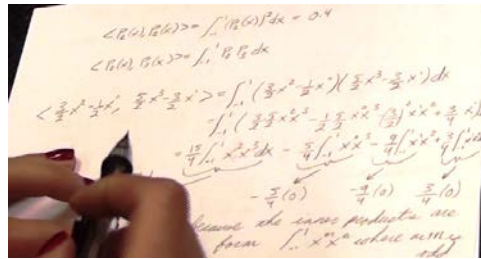 <P₂(x), P₂(x)> = ∫₋₁¹ (P₂(x))² dx = 0.4
<P₂(x), P₃(x)> = ∫₋₁¹ P₂ P₃ dx
<3/2 x² - 1/2 x⁰, 5/2 x³ - 3/2 x¹> = ∫₋₁¹ (3/2 x² - 1/2 x⁰)(5/2 x³ - 3/2 x¹) dx
= ∫₋₁¹ (3/2 5/2 x² x³ - 1/2 5/2 x⁰ x³ - (3/2)² x¹ x² + 3/4 x¹
= 15/4 ∫₋₁¹ x² x³ dx - 5/4 ∫₋₁¹ x⁰ x³ - 9/4 ∫₋₁¹ x¹ x² + 3/4 ∫₋₁¹
- 5/4 (0) - 9/4 (0) 3/4 (0)
because the inner products are
form ∫₋₁¹ xᵐ xⁿ where n+m
odd